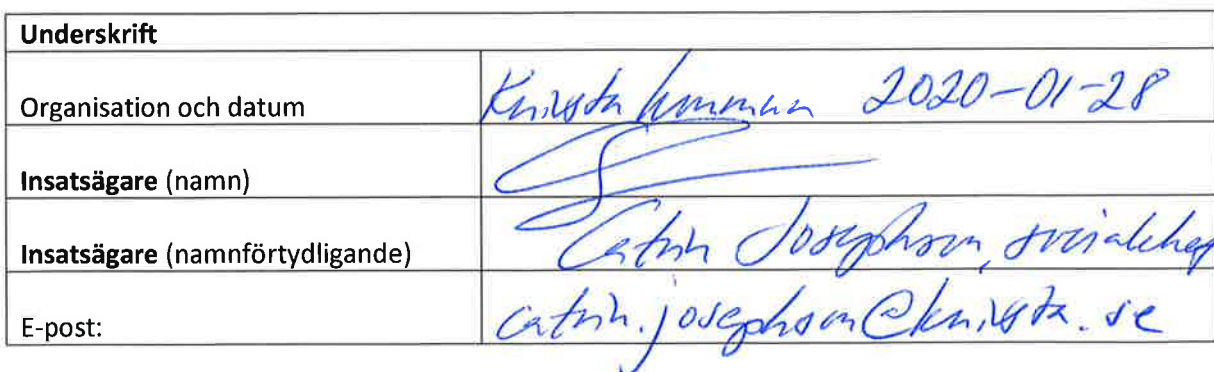 Underskrift
Organisation och datum Knivsta kommun 2020-01-28
Insatsägare (namn)
Insatsägare (namnförtydligande) Catrin Josephson, socialchef
E-post: catrin.josephson@knivsta.se